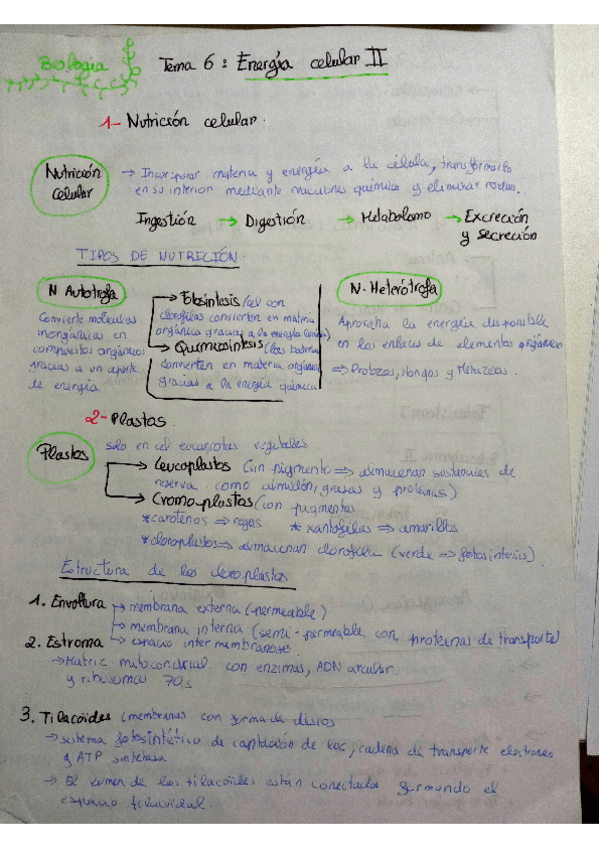 Biología
Tema 6: Energía celular II
1- Nutrición celular.
Nutrición celular
→ Incorporar materia y energía a la célula, transformarlo
en su interior mediante reacciones químicas y eliminar
Ingestión → Digestión → Metabolismo → Excreción
y secreción
TIPOS DE NUTRICIÓN
N Autótrofa
Convierte moléculas
inorgánicas en
compuestos orgánicos
gracias a un aporte
de energía
→ Fotosíntesis (cel con
clorofilas convierten en materia
orgánica gracias a la energía
→ Quimiosíntesis (las bacterias
convierten en materia orgánica
gracias a la energía química
N. Heterótrofa
Aprovecha la energía disponible
en los enlaces de elementos orgánicos
⇒ Protozoos, Hongos y Metazoos.
2- Plastos.
Plastos
solo en cel eucariotas vegetales.
→ Leucoplastos (sin pigmento ⇒ almacenan sustancias de
reserva como almidón, grasas y proteínas)
→ Cromoplastos (con pigmentos
*carotenos ⇒ rojos * xantofilas ⇒ amarillos
*cloroplastos ⇒ almacenan clorofila (verde ⇒ fotosíntesis).
Estructura de los cloroplastos
1. Envoltura → membrana externa (permeable)
→ membrana interna (semi-permeable con proteínas de transporte)
→ espacio intermembranoso
2. Estroma
→ Matriz mitocondrial con enzimas, ADN circular
y ribosomas 70s
3. Tilacoides (membranas con forma de discos
→ sistema fotosintético de captación de luz, cadena de transporte electrones
y ATP sintetasa
→ El lumen de los tilacoides están conectados formando el
espacio tilacoidal.